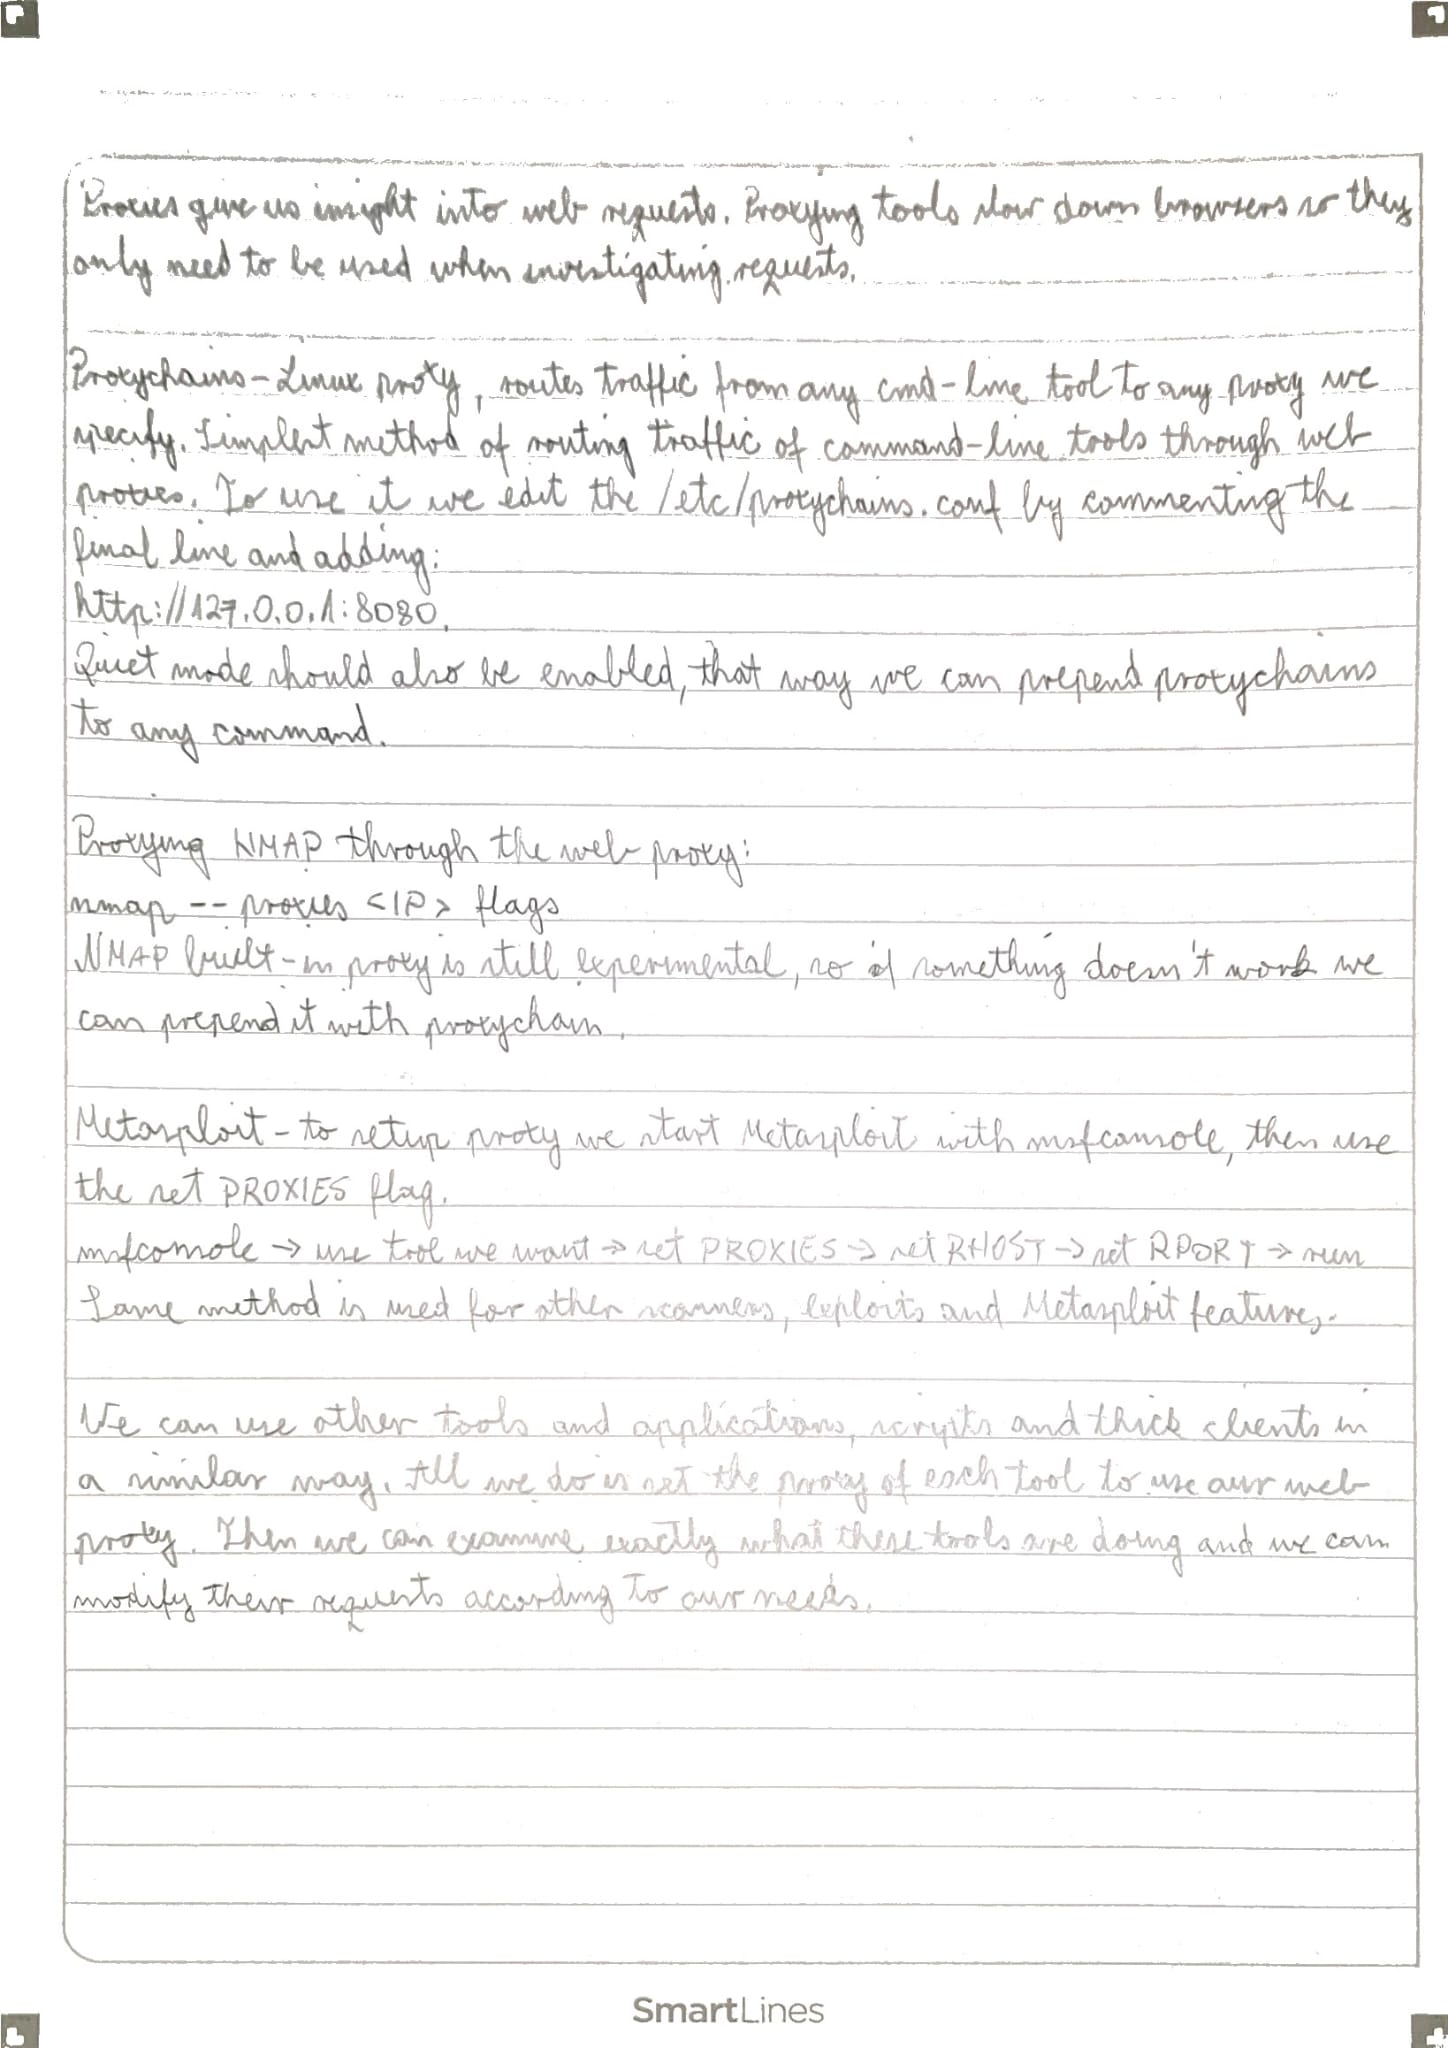 Proxies give us insight into web requests. Proxying tools slow down browsers so they
only need to be used when investigating requests.
Proxychains - Linux proxy, routes traffic from any cmd-line tool to any proxy we
specify. Simplest method of routing traffic of command-line tools through web
proxies. To use it we edit the /etc/proxychains.conf by commenting the
final line and adding:
http://127.0.0.1:8080.
Quiet mode should also be enabled, that way we can prepend proxychains
to any command.
Proxying NMAP through the web proxy:
nmap -- proxies <IP> flags
NMAP built-in proxy is still experimental, so if something doesn't work we
can prepend it with proxychain.
Metasploit - to setup proxy we start Metasploit with msfconsole, then use
the set PROXIES flag.
msfconsole → use tool we want → set PROXIES → set RHOST → set RPORT → run
Same method is used for other scanners, exploits and Metasploit features.
We can use other tools and applications, scripts and thick clients in
a similar way. All we do is set the proxy of each tool to use our web
proxy. Then we can examine exactly what these tools are doing and we can
modify their requests according to our needs.
SmartLines